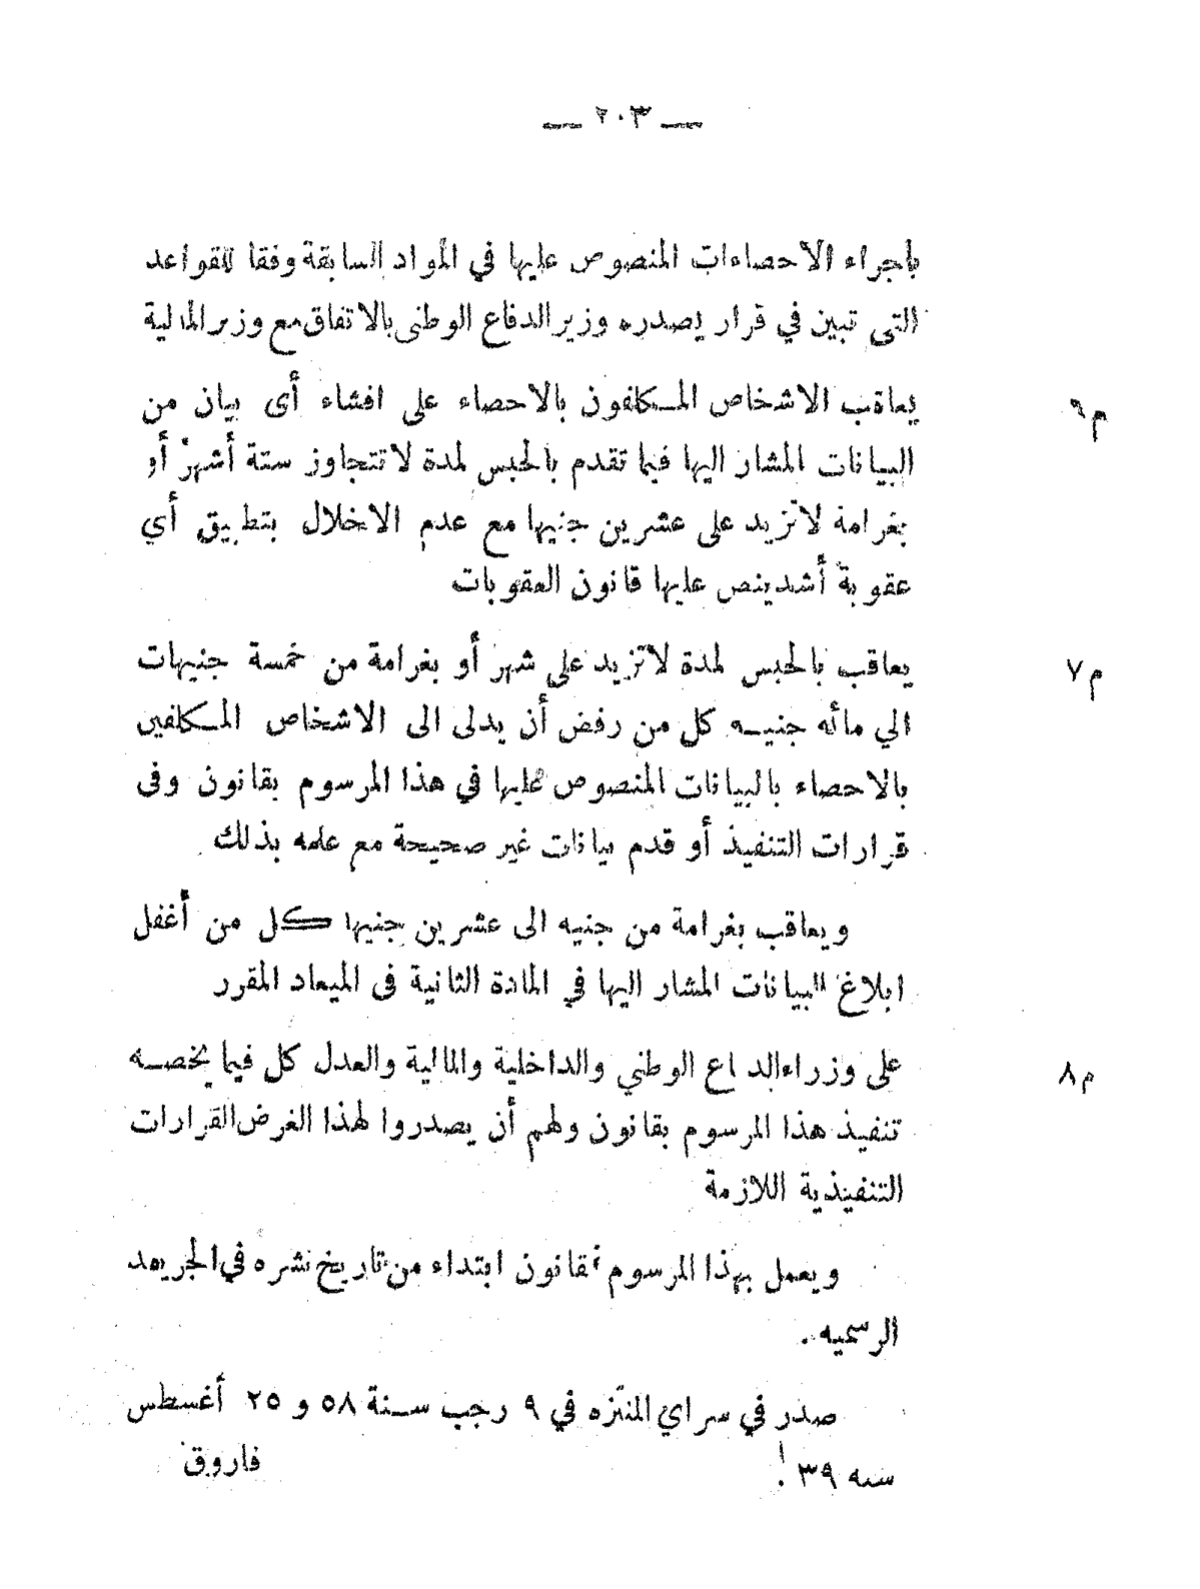 — ٢٠٣ —
باجراء الاحصاءات المنصوص عليها في المواد السابقة وفقا للقواعد
التى تبين في قرار يصدره وزير الدفاع الوطنى بالاتفاق مع وزير المالية
م٦ يعاقب الاشخاص المكلفون بالاحصاء على افشاء أى بيان من
البيانات المشار اليها فيما تقدم بالحبس لمدة لا تتجاوز ستة أشهر أو
بغرامة لا تزيد على عشرين جنيها مع عدم الاخلال بتطبيق أي
عقوبة أشد ينص عليها قانون العقوبات
م٧ يعاقب بالحبس لمدة لا تزيد على شهر أو بغرامة من خمسة جنيهات
الي مائه جنيه كل من رفض أن يدلى الى الاشخاص المكلفين
بالاحصاء بالبيانات المنصوص عليها في هذا المرسوم بقانون وفى
قرارات التنفيذ أو قدم بيانات غير صحيحة مع علمه بذلك .
ويعاقب بغرامة من جنيه الى عشرين جنيها كل من أغفل
ابلاغ البيانات المشار اليها في المادة الثانية فى الميعاد المقرر
م٨ على وزراء الدفاع الوطني والداخلية والمالية والعدل كل فيما يخصه
تنفيذ هذا المرسوم بقانون ولهم أن يصدروا لهذا الغرض القرارات
التنفيذية اللازمة
ويعمل بهذا المرسوم بقانون ابتداء من تاريخ نشره في الجريده
الرسميه .
صدر في سراي المنتزه في ٩ رجب سنة ٥٨ و ٢٥ أغسطس
سنه ٣٩ . فاروق